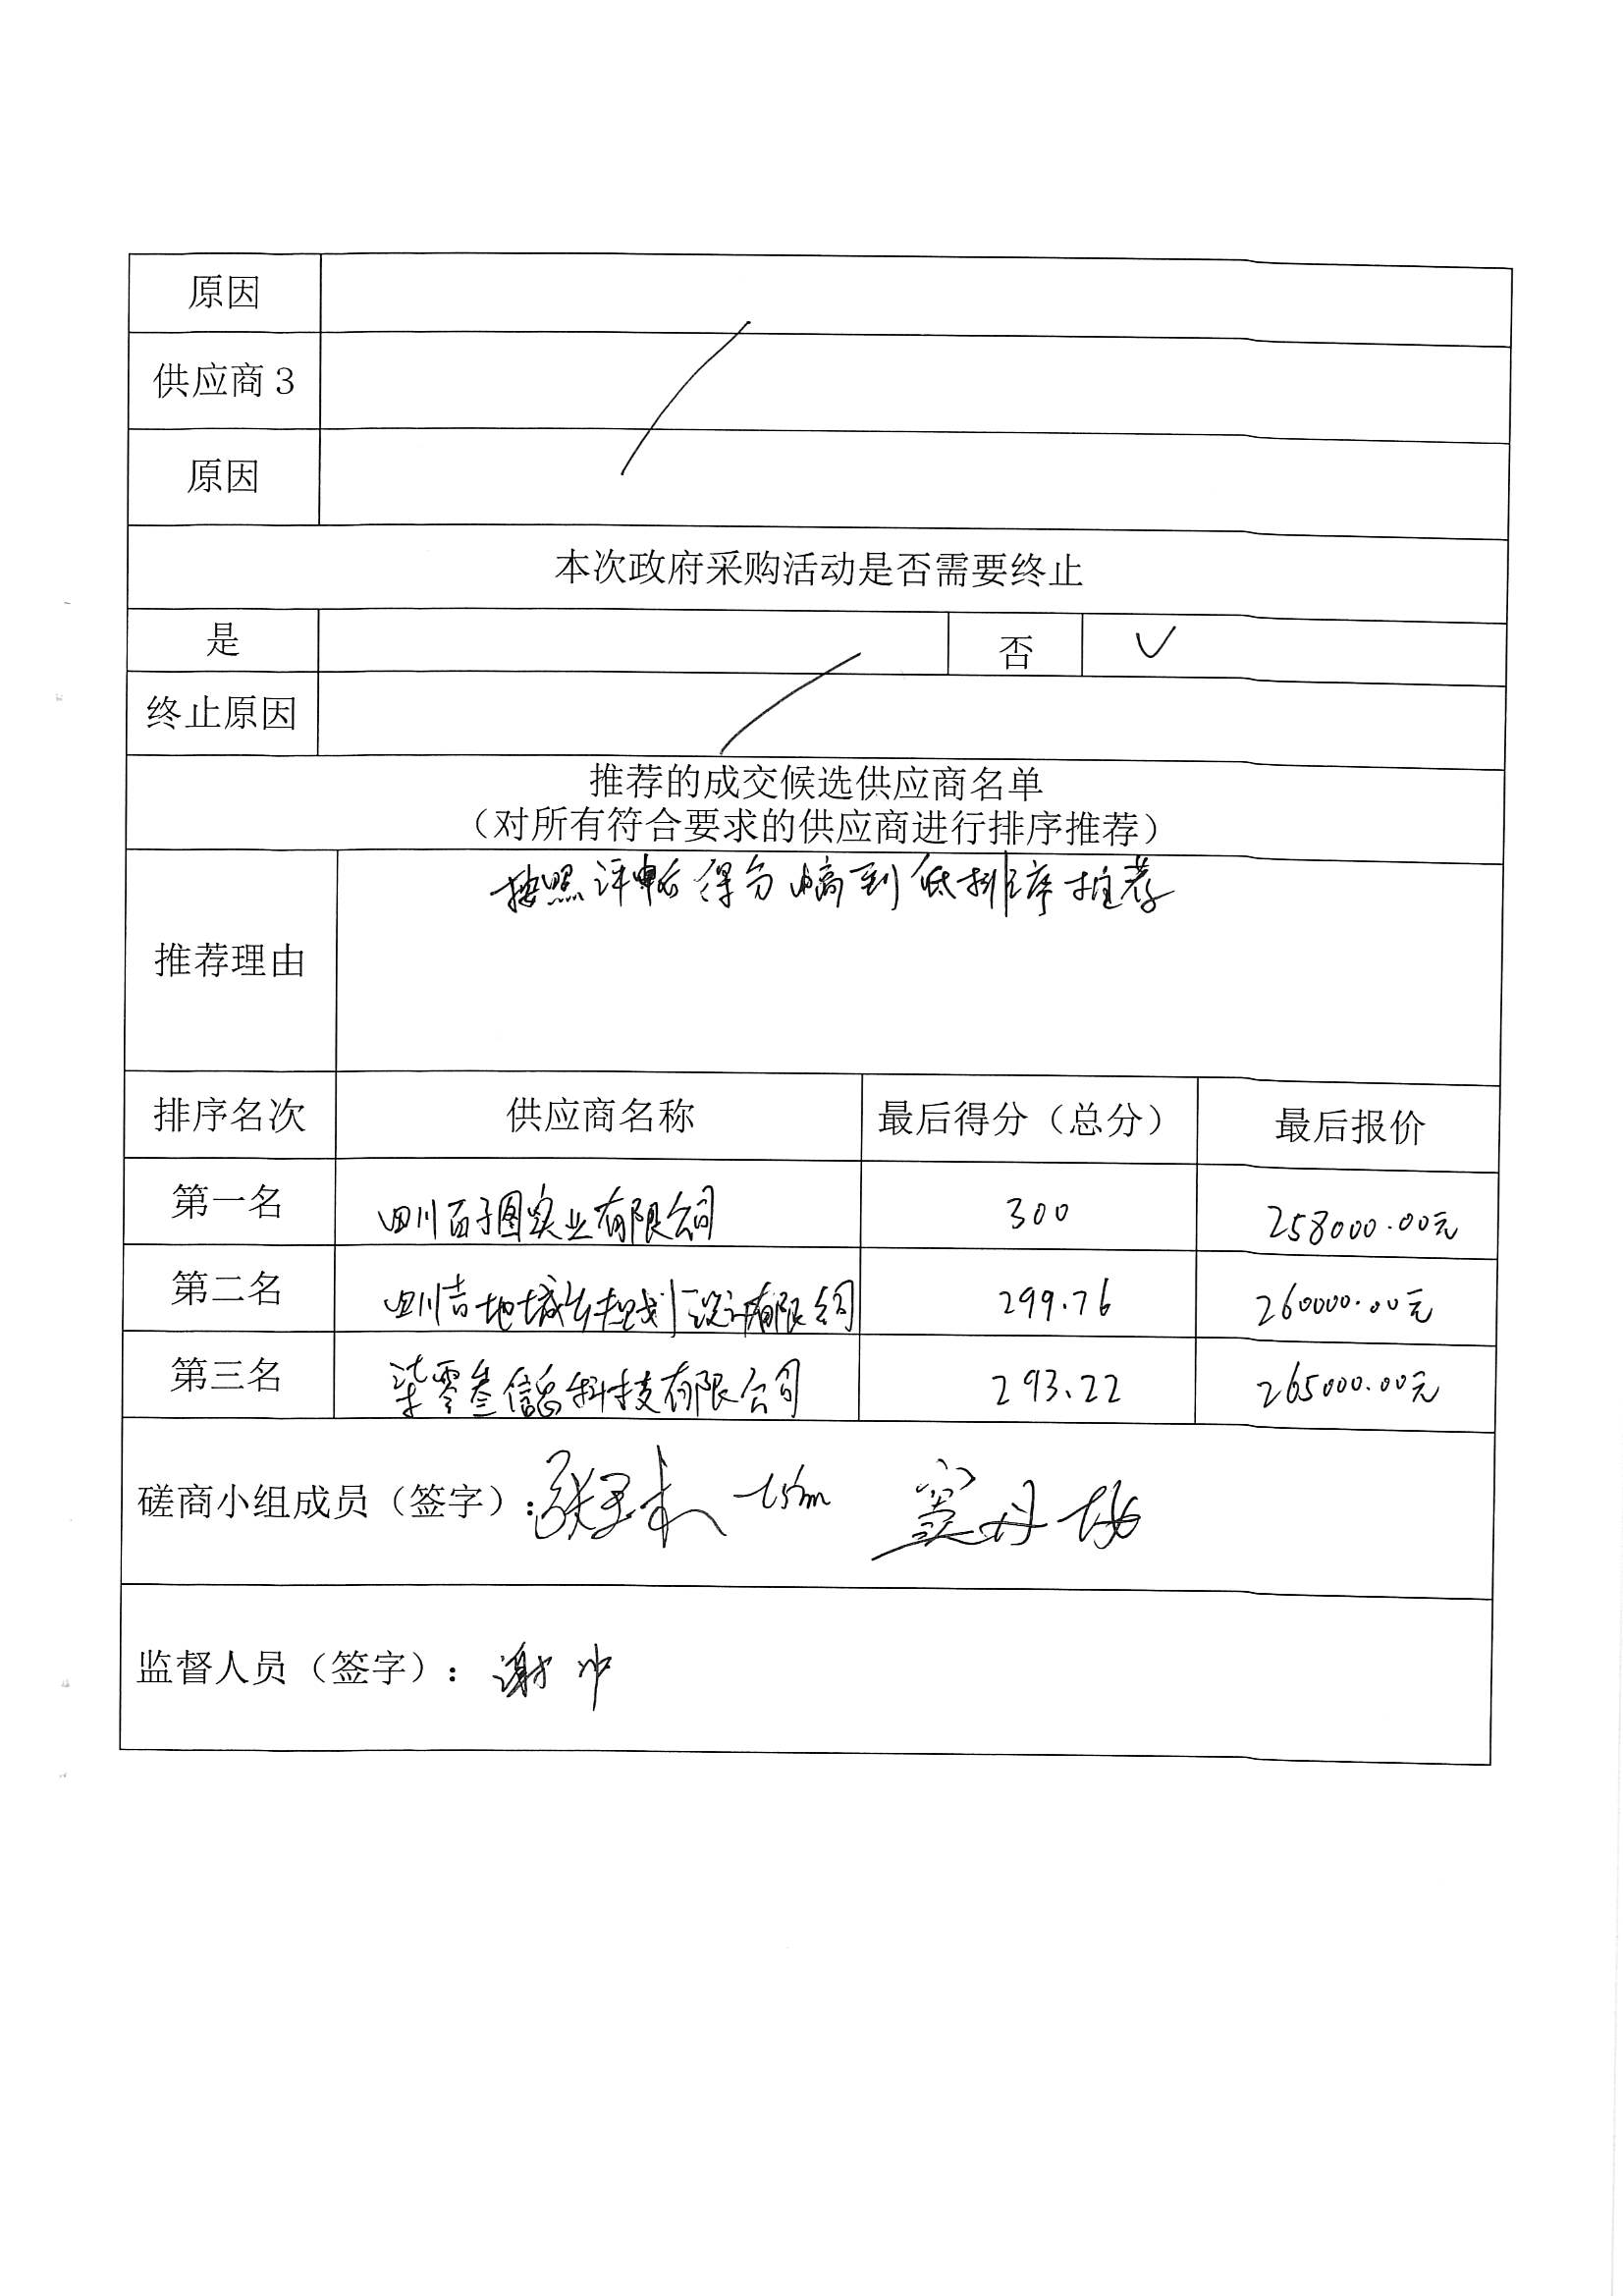 原因
供应商3
原因
本次政府采购活动是否需要终止
是 否 ✓
终止原因
推荐的成交候选供应商名单
（对所有符合要求的供应商进行排序推荐）
按照评审后得分由高到低排序推荐
推荐理由
排序名次 供应商名称 最后得分（总分） 最后报价
第一名 四川百子图实业有限公司 300 258000.00元
第二名 四川吉地城乡规划设计有限公司 299.76 260000.00元
第三名 柒零叁信息科技有限公司 293.22 265000.00元
磋商小组成员（签字）：
监督人员（签字）：谢中